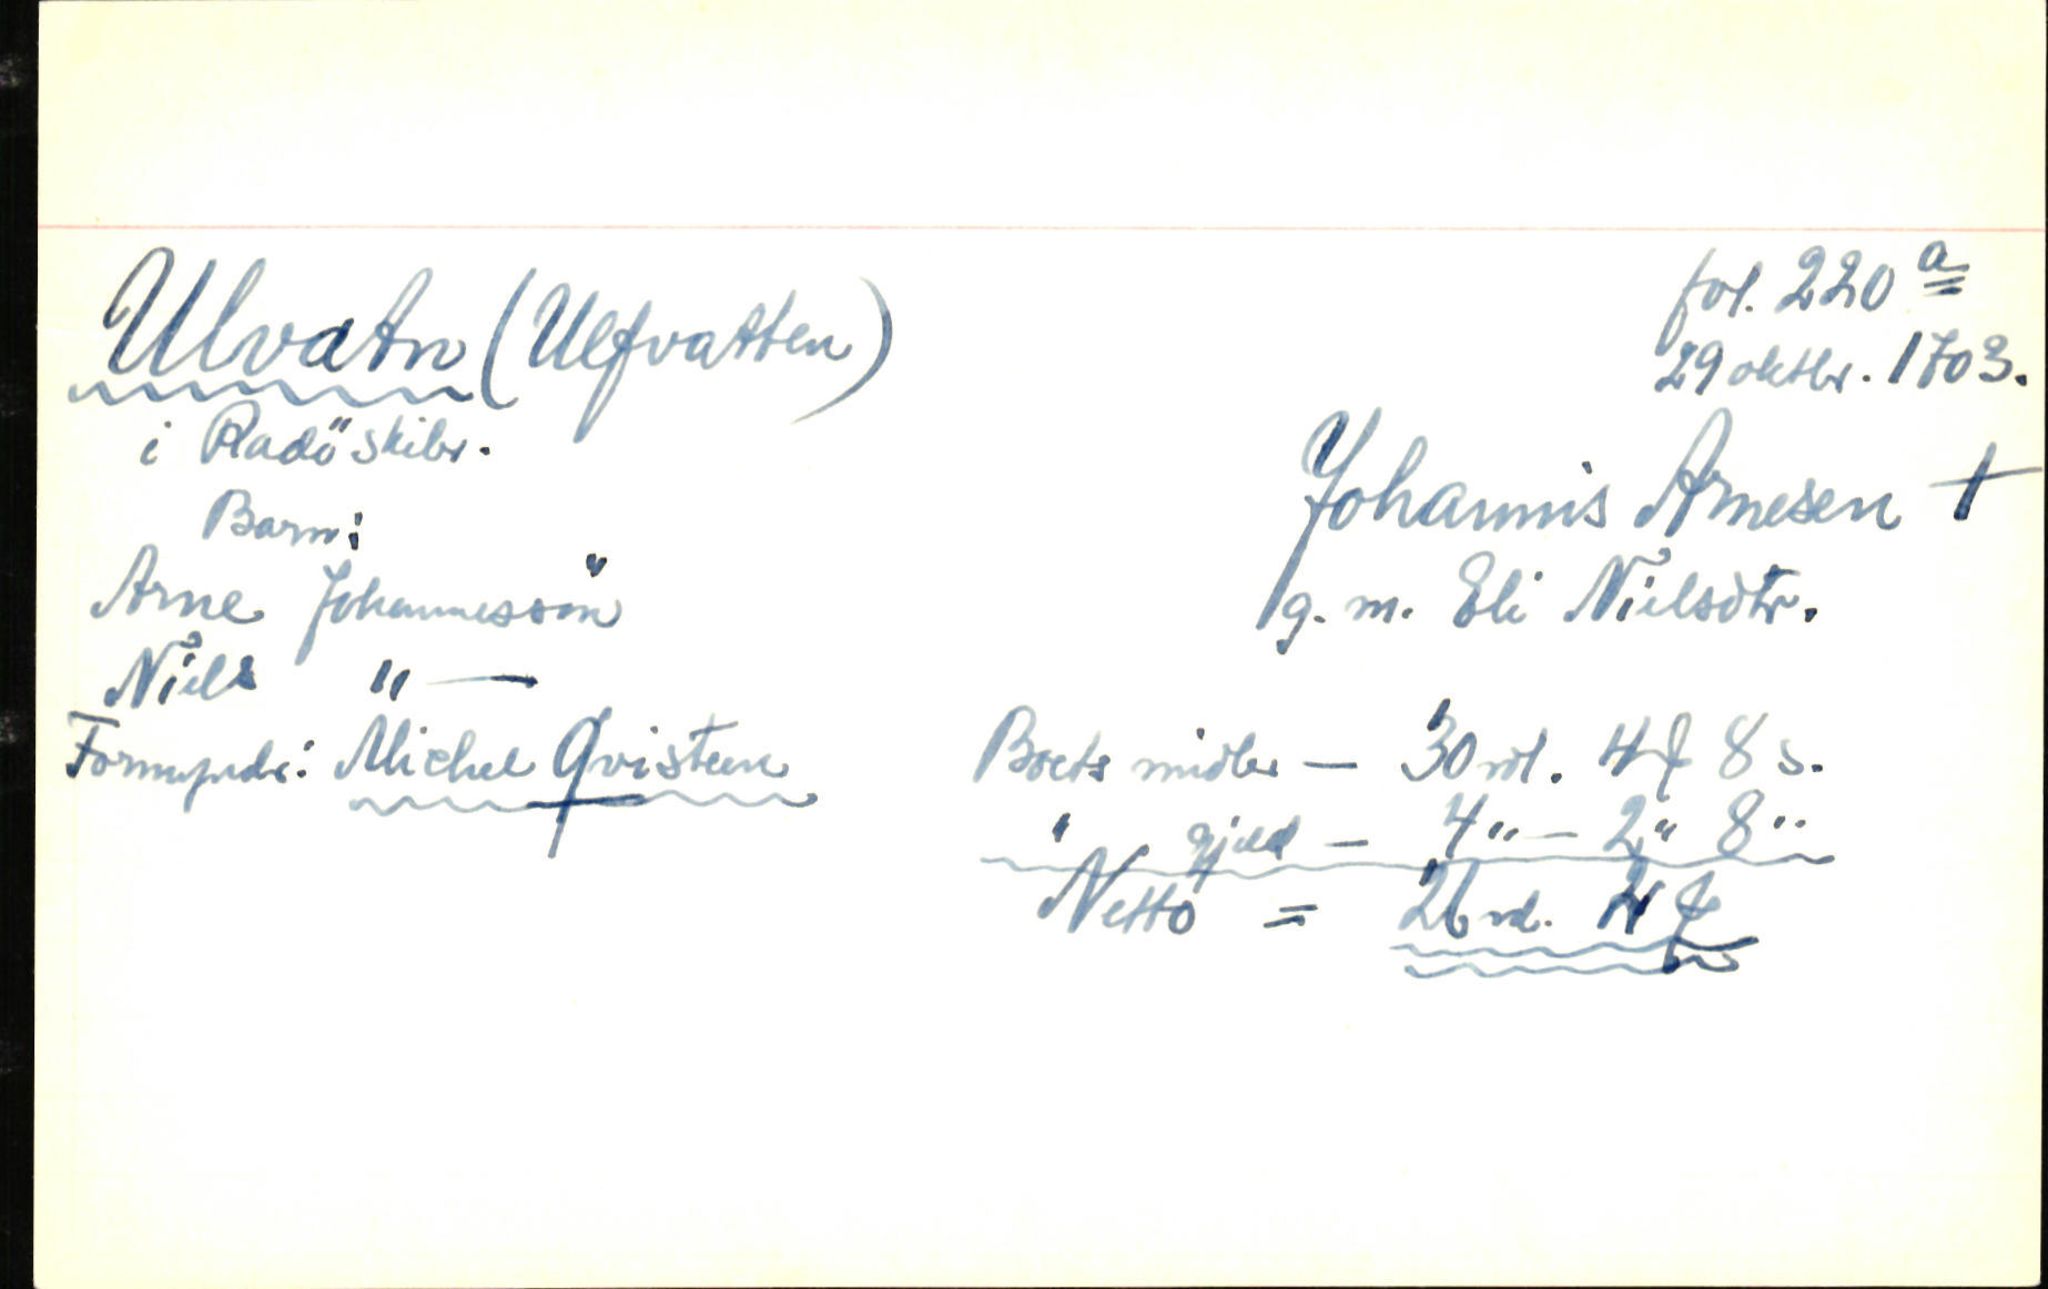 Ulvatn (Ulfvatten)
i Radöskibr.
Barn:
Arne Johannessön
Niels " —
Formyndr: Michel Qvisteen
fol. 220 a
29 oktbr. 1703.
Johannis Arnesen †
g. m. Eli Nielsdtr.
Boets midler — 30 rdl. 4 ƒ 8 s.
" gjeld — 4 " — 2 " 8 "
Netto = 26 rd. 2 ƒ